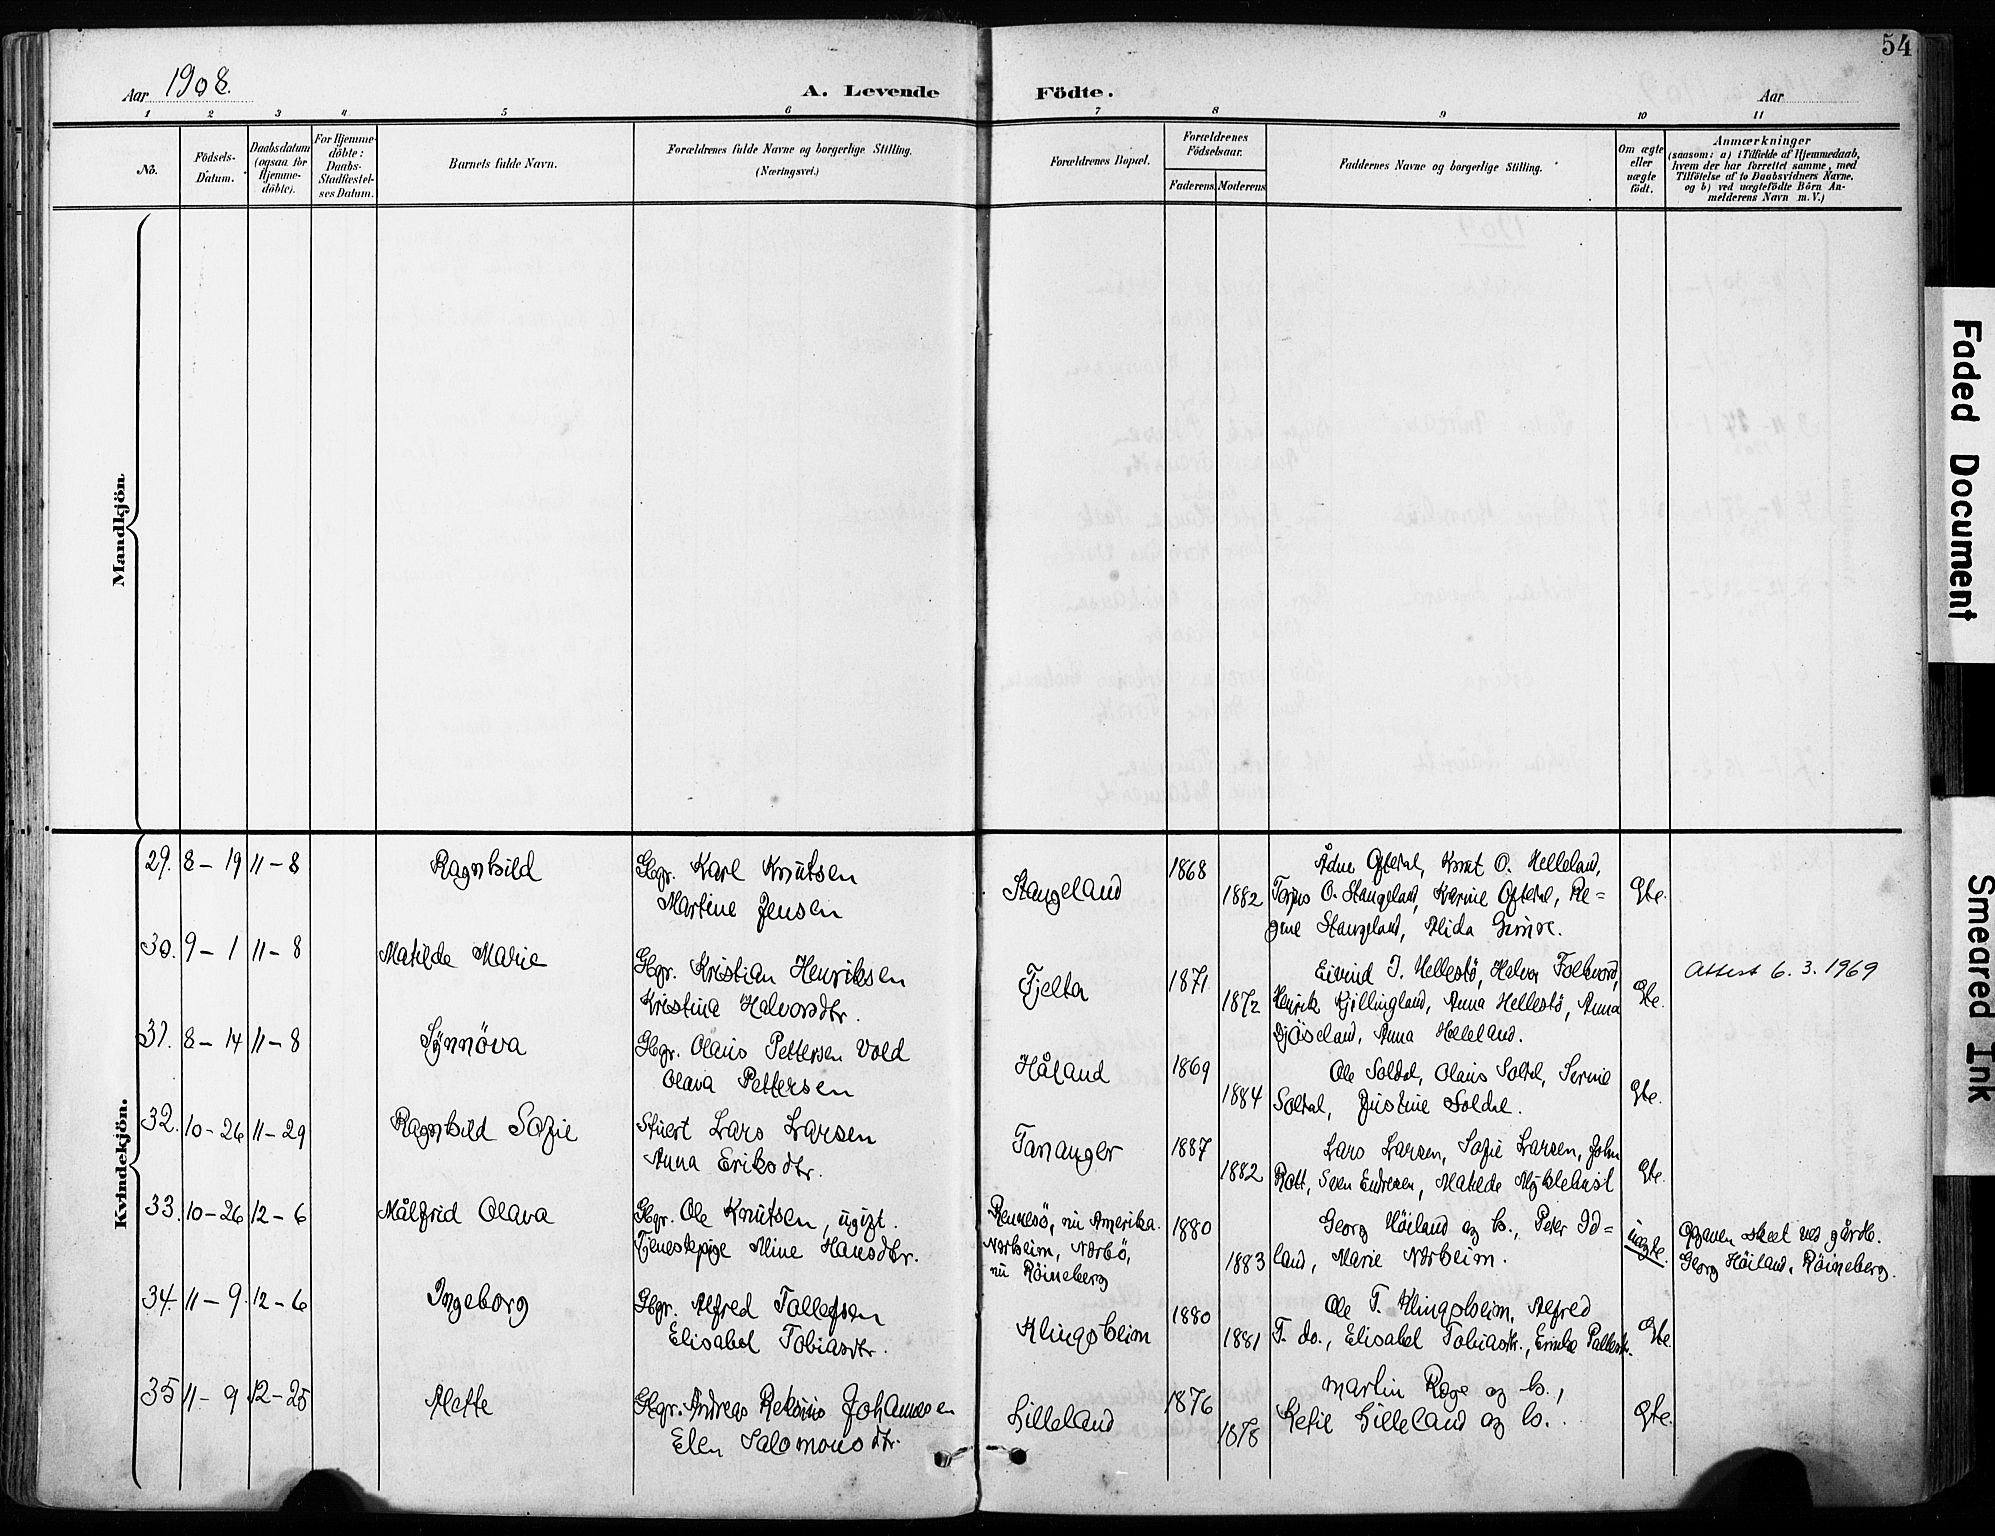 54
Aar 1908.
A. Levende Födte.
Aar
1 2 3 4 5 6 7 8 9 10 11
No.
Födsels-
Datum.
Daabsdatum
(ogsaa for
Hjemme-
döbte).
For Hjemme-
döbte:
Daabs-
Stadfæstel-
ses Datum.
Barnets fulde Navn.
Forældrenes fulde Navne og borgerlige Stilling.
(Næringsvei.)
Forældrenes Bopæl.
Forældrenes
Födselsaar.
Faderens. Moderens.
Faddernes Navne og borgerlige Stilling.
Om ægte
eller
uægte
födt.
Anmærkninger
(saasom: a) i Tilfælde af Hjemmedaab,
hvem der har forrettet samme, med
Tilföielse af to Daabsvidners Navne,
og b) ved uægtefödte Börn An-
melderens Navn m. V.)
Mandkjön.
Kvindekjön.
29. 8-19 11-8 Ragnhild
Gbgr. Karl Knutsen
Martine Jensen
Stangeland
1868
1882
Ådne Oftedal, Knut O. Helleland,
O. Stangeland, Oftedal, Re=
gine Stangeland, Alida Gimre.
Egte.
30. 9-1 11-8 Matilde Marie
Gbgr. Kristian Henriksen
Kristina Halvorsdtr.
Tjelta
1871
1872
Eivind J. Hellestö, Folkvord,
Henrik Anna Hellestö, Anna
Anna Helleland.
Egte.
Attest 6.3.1969
31. 8-14 11-8 Synnöva
Gbgr. Olaus Pettersen Vold
Olava Pettersen
Håland
1869
1884
Ole Soldal, Olaus Soldal,
Soldal, Justine Soldal.
Egte.
32. 10-26 11-29 Ragnhild Sofie
Stuert Lars Larsen
Anna Eriksdtr.
Tananger
1887
1882
Lars Larsen, Sofie Larsen, John
Rott, Sven Endresen, Matilde Myklebust
Egte.
33. 10-26 12-6 Målfrid Olava
Gbgr. Ole Knutsen, ugift.
Tjenestepige Mine Hansdtr.
Rennesö, nu Amerika.
Norheim, Nærbö,
nu Röineberg
1880
1883
Georg Höiland og h., Peter Id=
land, Marie Norheim.
uægte.
Opgaven skeet ved gårdb.
Georg Höiland, Röineberg.
34. 11-9 12-6 Ingeborg
Gbgr. Alfred Tollefsen
Elisabet Tobiasdtr.
Klingsheim
1880
1881
Ole T. Klingsheim, Alfred
T. do., Elisabet Tobiasdtr.,
Egte.
35 11-9 12-25 Alette
Gbgr. Andreas Johannesen
Elen Salomonsdtr.
Lilleland
1876
1878
Martin Rege og h.,
Ketil Lilleland og h.
Egte.
Faded Document
Smeared Ink